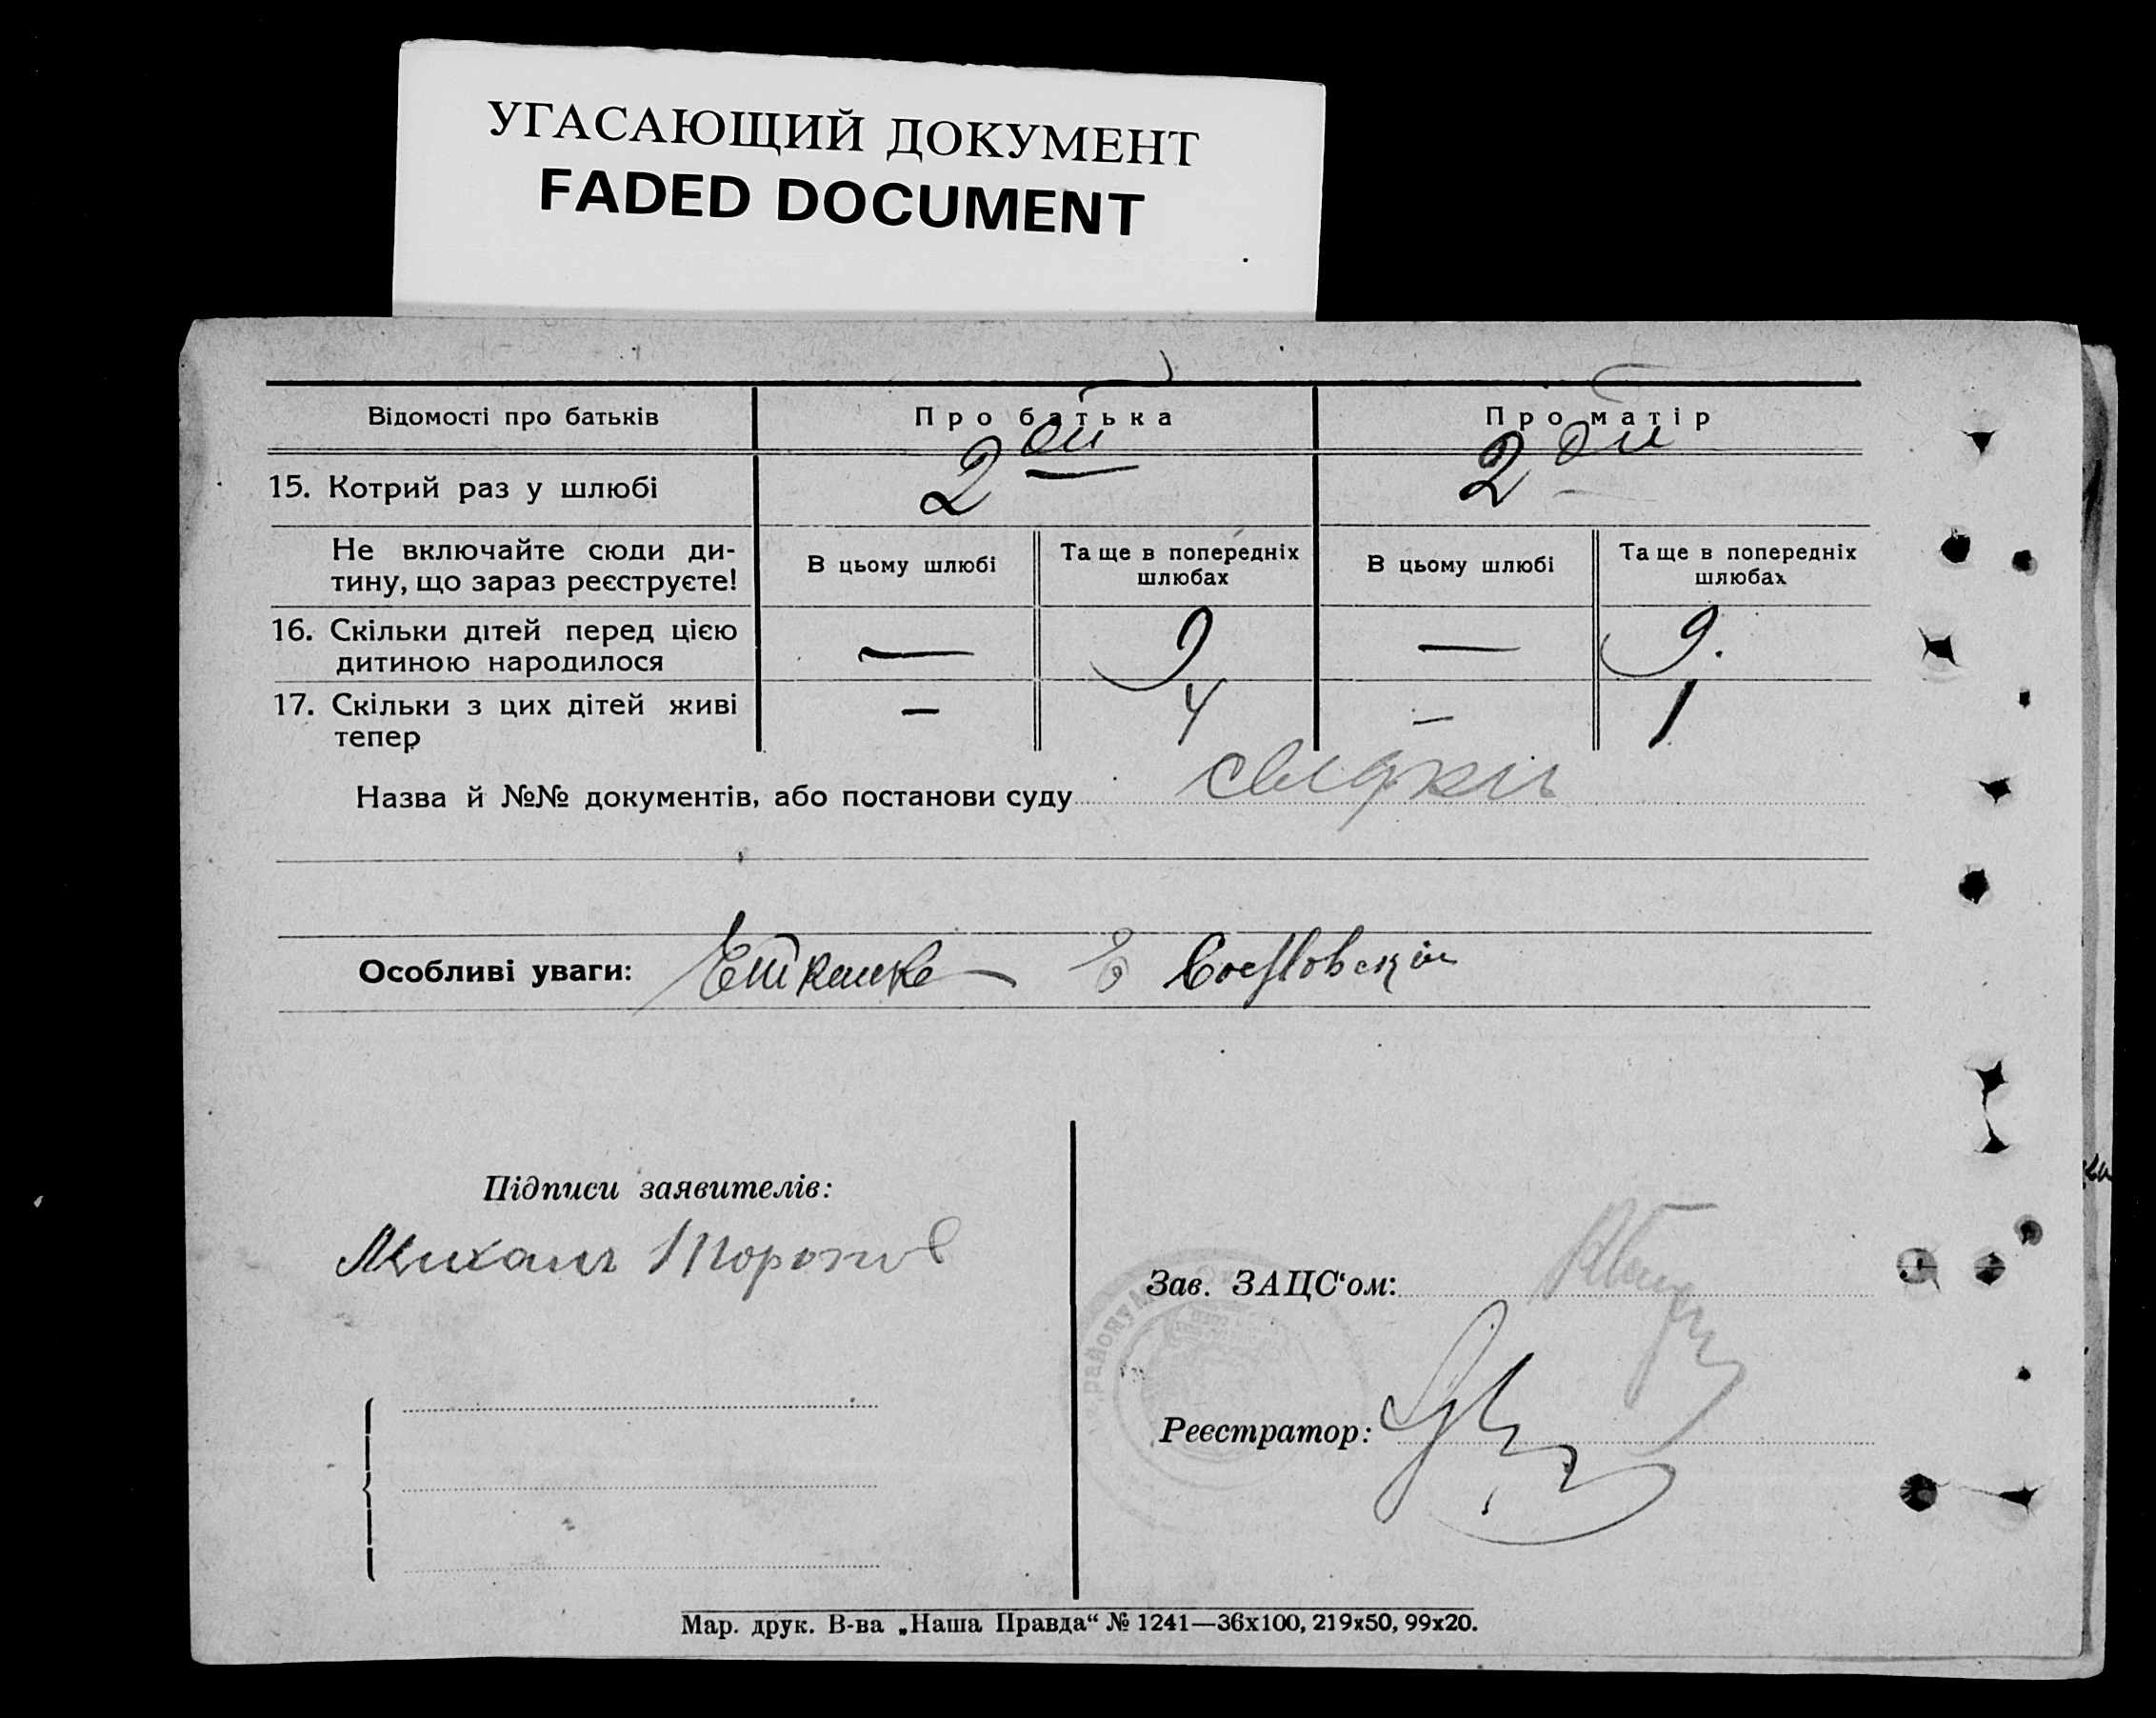 УГАСАЮЩИЙ ДОКУМЕНТ
FADED DOCUMENT
Відомості про батьків Про батька Про матір
15. Котрий раз у шлюбі 2 ой 2 ой
Не включайте сюди ди-
тину, що зараз реєструєте!
В цьому шлюбі
Та ще в попередніх
шлюбах
В цьому шлюбі
Та ще в попередніх
шлюбах
16. Скільки дітей перед цією
дитиною народилося — 9 — 9.
17. Скільки з цих дітей живі
тепер — 4 — 1
Назва й №№ документів, або постанови суду
Особливі уваги:
Підписи заявителів:
Михаил
Зав. ЗАЦС'ом:
району
Реєстратор:
Мар. друк. В-ва „Наша Правда“ № 1241—36х100, 219х50, 99х20.